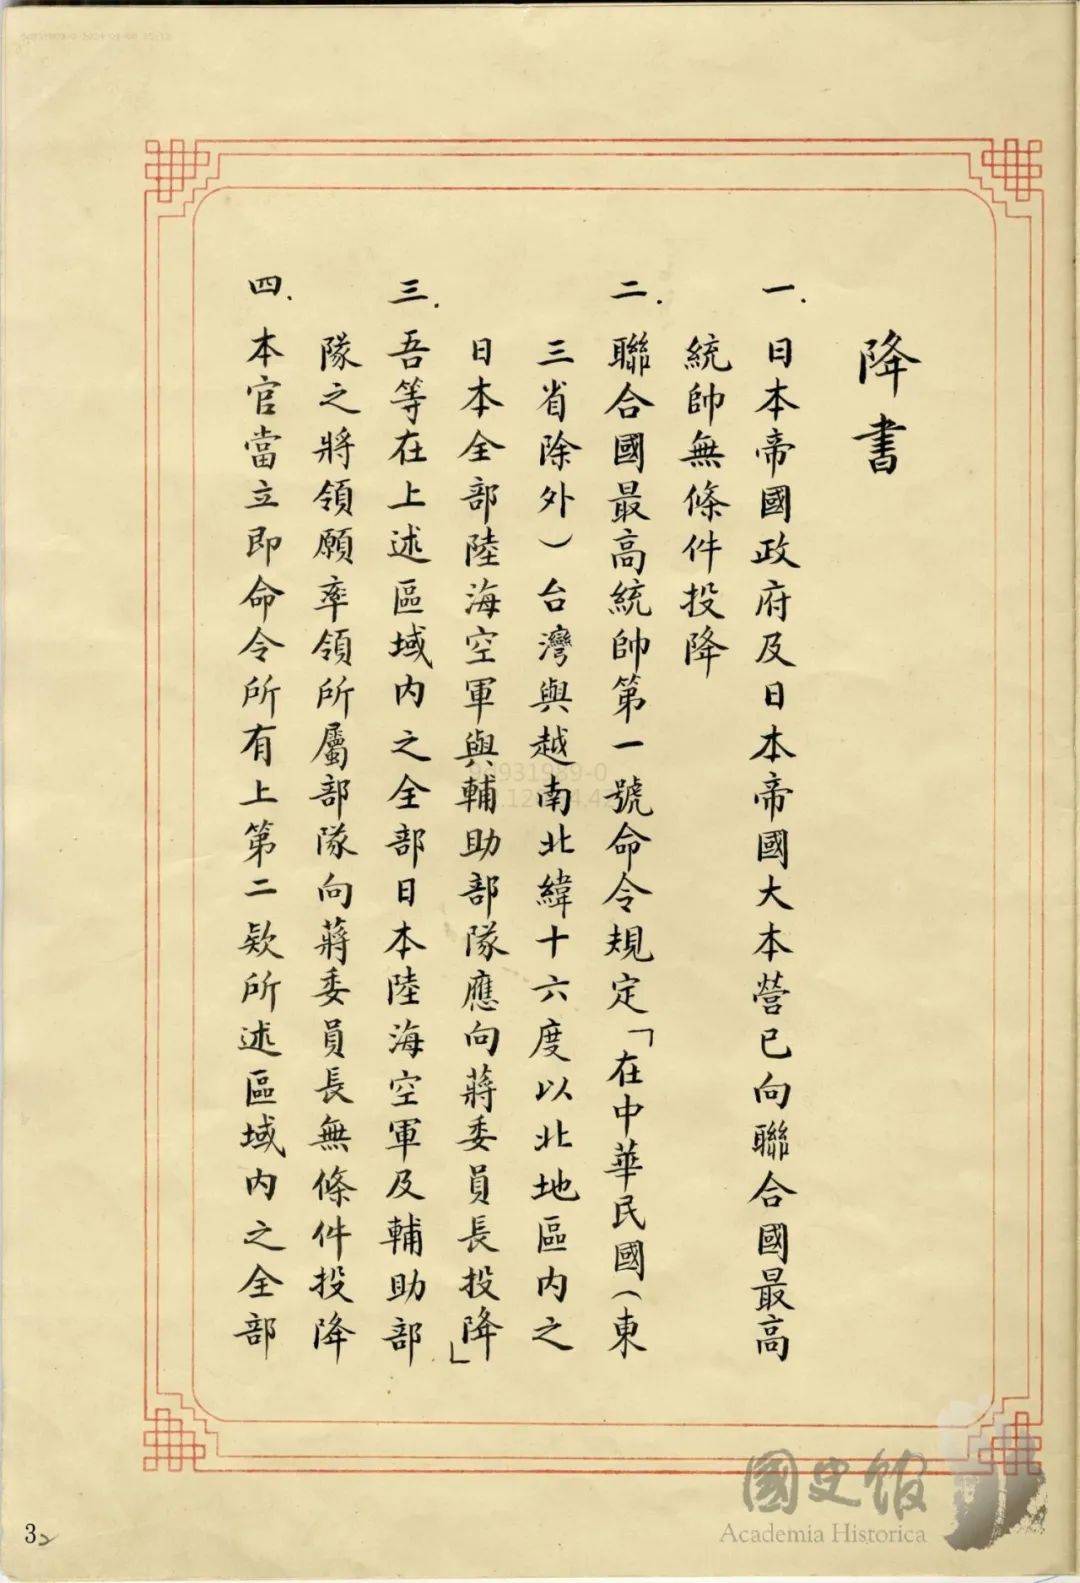 降書
一.日本帝國政府及日本帝國大本營已向聯合國最高
統帥無條件投降
二.聯合國最高統帥第一號命令規定「在中華民國(東
三省除外)台灣與越南北緯十六度以北地區內之
日本全部陸海空軍與輔助部隊應向蔣委員長投降」
三.吾等在上述區域內之全部日本陸海空軍及輔助部
隊之將領願率領所屬部隊向蔣委員長無條件投降
四.本官當立即命令所有上第二欵所述區域內之全部
3
國史館
Academia Historica